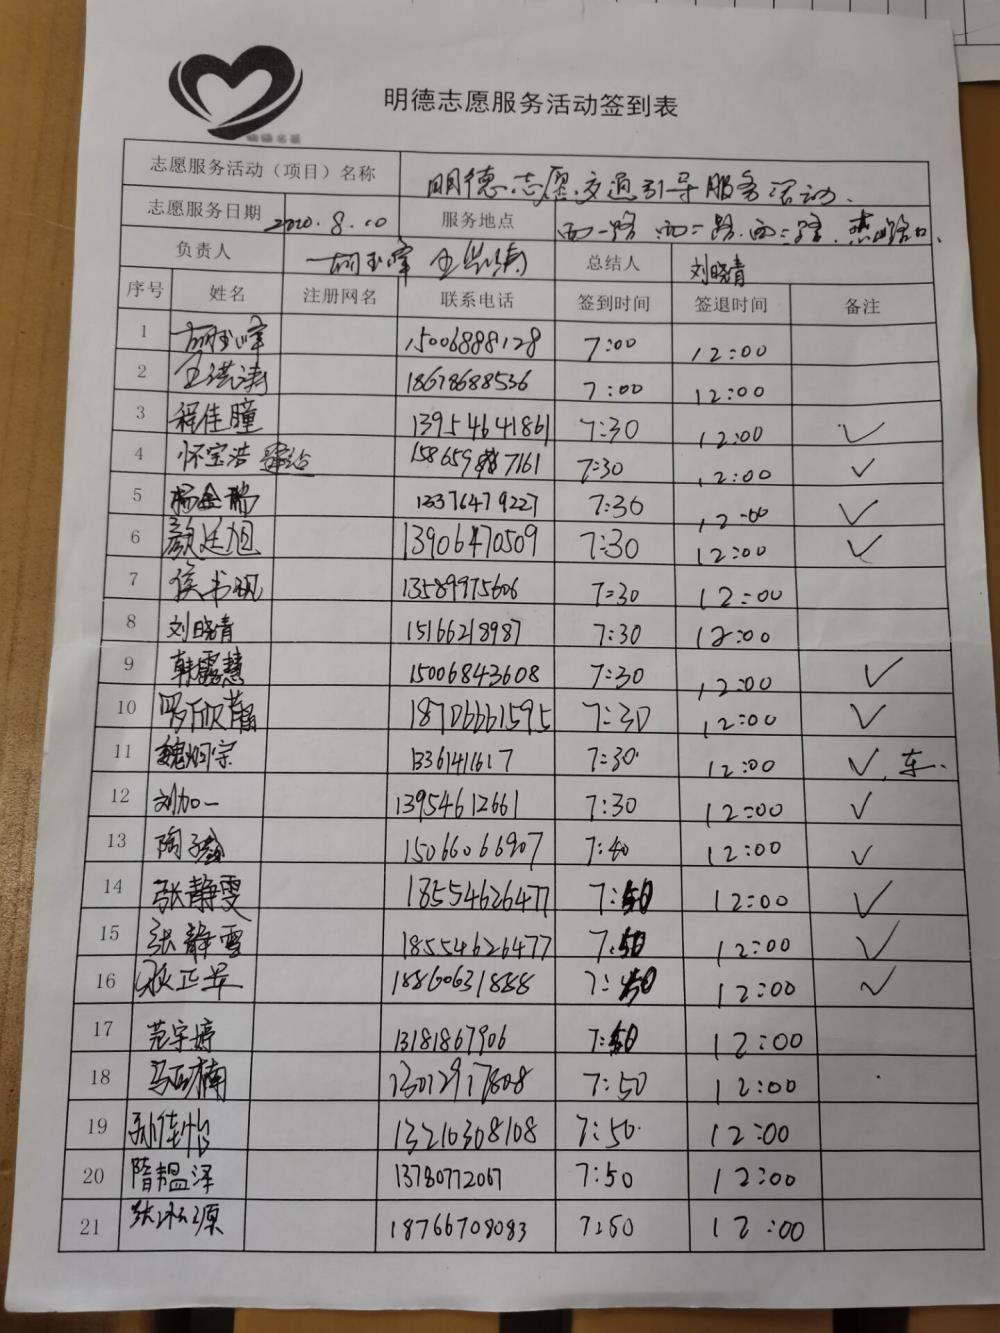 明德志愿服务活动签到表
志愿服务活动（项目）名称 明德志愿交通引导服务活动.
志愿服务日期 2020.8.10 服务地点 西一路 西二路.西三路.
负责人 胡玉峰 王洪涛 总结人 刘晓青
序号 姓名 注册网名 联系电话 签到时间 签退时间 备注
1 胡玉峰 15006888128 7:00 12:00
2 王洪涛 18678688536 7:00 12:00
3 程佳瞳 13954641861 7:30 12:00 ✓
4 怀宝浩 158659 7161 7:30 12:00 ✓
5 杨金瑞 13376479227 7:30 12:00 ✓
6 颜廷旭 13906470509 7:30 12:00 ✓
7 侯书砚 13589975606 7:30 12:00
8 刘晓青 15166218987 7:30 12:00
9 韩露慧 15006843608 7:30 12:00 ✓
10 罗欣静 18706661595 7:30 12:00 ✓
11 魏炯宗 13361411617 7:30 12:00 ✓.车.
12 刘加一 13954612661 7:30 12:00 ✓
13 陶子 15066066907 7:40 12:00 ✓
14 张静雯 18554626477 7:50 12:00 ✓
15 张静雪 18554626477 7:50 12:00 ✓
16 18860631888 7:50 12:00 ✓
17 范宇婷 13181867906 7:50 12:00
18 马亚楠 13012917808 7:50 12:00
19 孙佳怡 13210308108 7:50 12:00
20 隋韫泽 13780772067 7:50 12:00
21 张源 18766708083 7:50 12:00